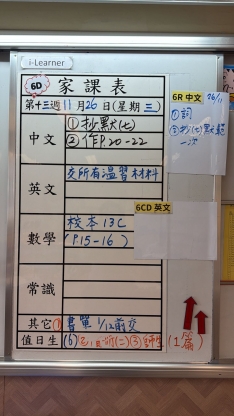 i-Learner
6D 家課表
第十三週 11月26日(星期三)
中文
①抄默(七)
②作P.20-22
英文
交所有溫習材料
數學
校本13C
(P.15-16)
常識
其它 ① 書單 1/12前交
值日生 (6)
6R 中文 26/11
①詞
②抄(七)默文
一次
6CD 英文